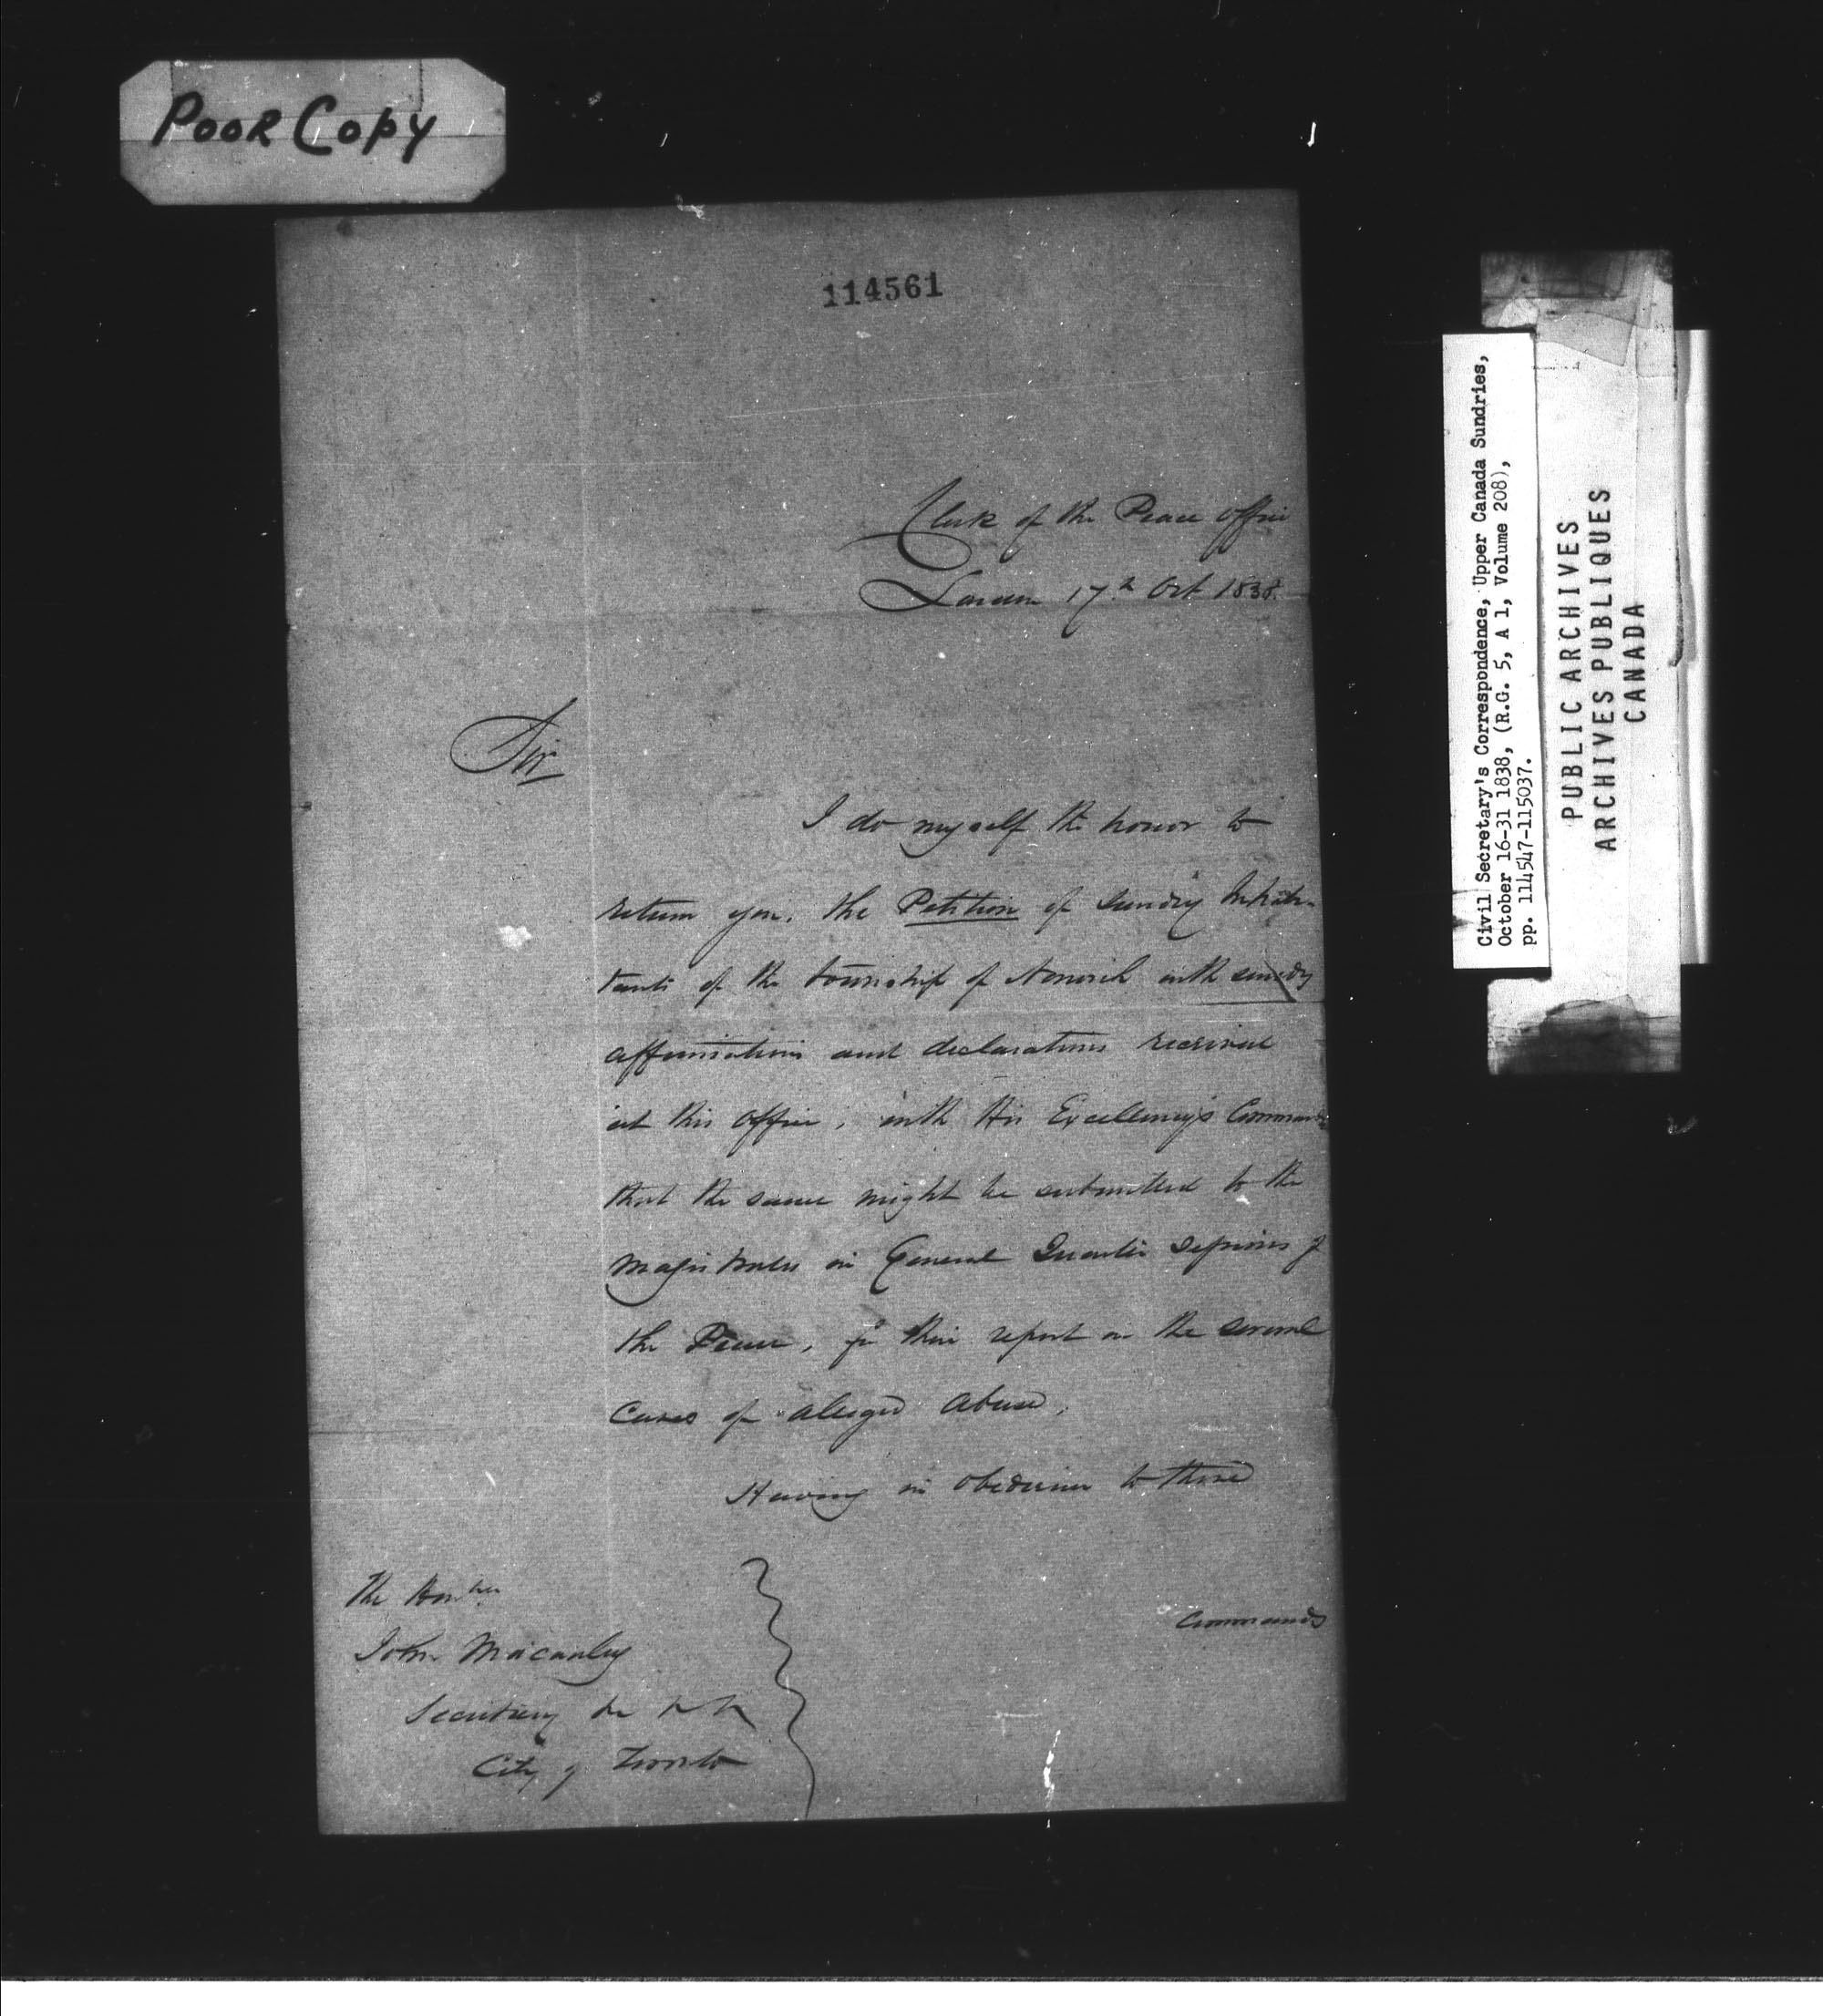 Poor Copy
114561
Clerk of the Peace Office
17th Oct 1838.
Sir
I do myself the honor to
return you, the Petition of sundry Inhabi-
tants of the township of Norwich with sundry
affirmations and declarations received
at this Office, with His Excellency's Commands
that the same might be submitted to the
Magistrates in General Quarter Sessions of
the Peace, for their report on the several
Cases of aleged abuse,
Having in obedience to those
Commands
The Honble
John Macaulay
Secretary &c &c &c
City of Toronto
Civil Secretary's Correspondence, Upper Canada Sundries,
October 16-31 1838, (R.G. 5, A 1, Volume 208),
pp. 114547-115037.
PUBLIC ARCHIVES
ARCHIVES PUBLIQUES
CANADA